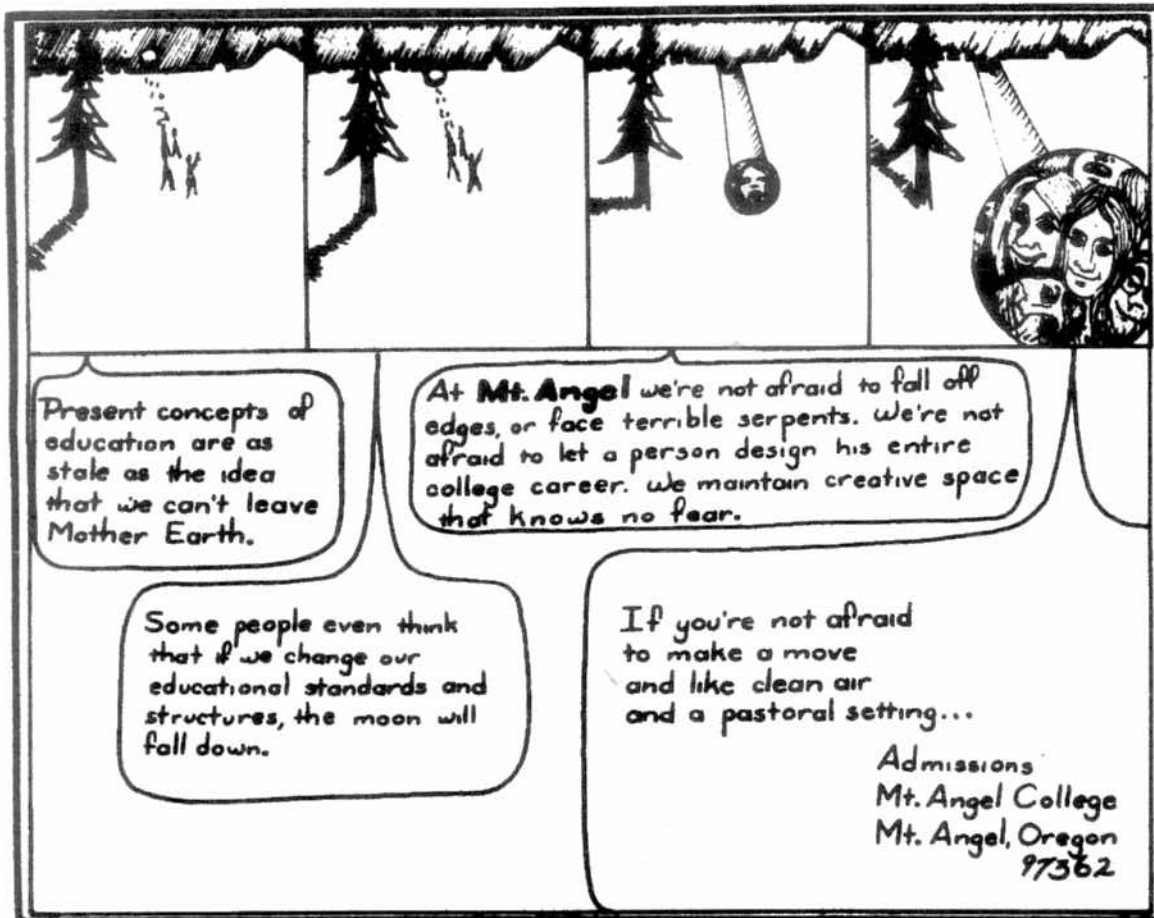 Present concepts of
education are as
stale as the idea
that we can't leave
Mother Earth.
Some people even think
that if we change our
educational standards and
structures, the moon will
fall down.
At Mt. Angel we're not afraid to fall off
edges, or face terrible serpents. We're not
afraid to let a person design his entire
college career. We maintain creative space
that knows no fear.
If you're not afraid
to make a move
and like clean air
and a pastoral setting...
Admissions
Mt. Angel College
Mt. Angel, Oregon
97362